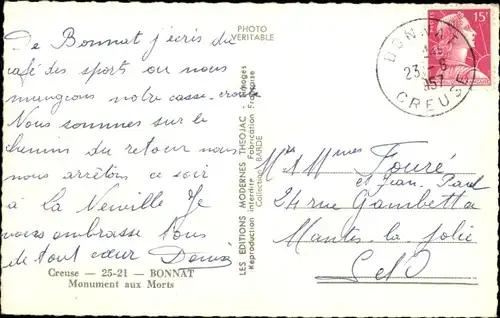 PHOTO
VERITABLE
De Bonnat j'écris du
café des sports ou nous
mangeons notre casse-croute
Nous sommes sur le
chemin du retour nous
nous arrêtons ce soir
à la Neuville Je
vous embrasse tous
de tout cœur Denise
Creuse — 25-21 — BONNAT
Monument aux Morts
LES EDITIONS MODERNES THEOJAC - Limoges
Reproduction interdite - Fabrication Française
Collection BARDE
BONNAT
23 - 8
1957
CREUSE
15F
Mr & Mmes Fouré
et Jean Paul
24 rue Gambetta
Mantes la Jolie
S et O